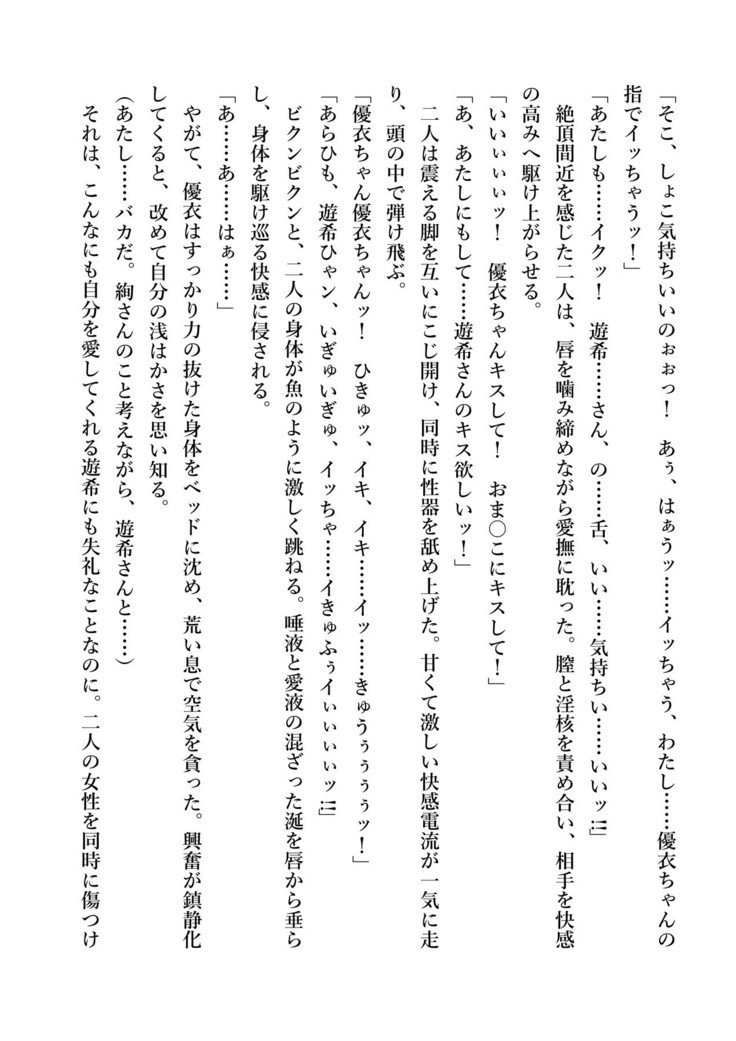 「そこ、しょこ気持ちいいのぉぉっ！　あぅ、はぁうッ……イッちゃう、わたし……優衣ちゃんの
指でイッちゃうッ！」
「あたしも……イクッ！　遊希……さん、の……舌、いい……気持ちい……いいッ!!」
　絶頂間近を感じた二人は、唇を噛み締めながら愛撫に耽った。膣と淫核を責め合い、相手を快感
の高みへ駆け上がらせる。
「いいぃぃぃッ！　優衣ちゃんキスして！　おま〇こにキスして！」
「あ、あたしにもして……遊希さんのキス欲しいッ！」
　二人は震える脚を互いにこじ開け、同時に性器を舐め上げた。甘くて激しい快感電流が一気に走
り、頭の中で弾け飛ぶ。
「優衣ちゃん優衣ちゃんッ！　ひきゅッ、イキ、イキ……イッ……きゅうぅぅぅぅッ！」
「あらひも、遊希ひゃン、いぎゅいぎゅ、イッちゃ……イきゅふぅイぃぃぃぃッ!!」
　ビクンビクンと、二人の身体が魚のように激しく跳ねる。唾液と愛液の混ざった涎を唇から垂ら
し、身体を駆け巡る快感に侵される。
「あ……あ……はぁ……」
　やがて、優衣はすっかり力の抜けた身体をベッドに沈め、荒い息で空気を貪った。興奮が鎮静化
してくると、改めて自分の浅はかさを思い知る。
（あたし……バカだ。絢さんのこと考えながら、遊希さんと……）
　それは、こんなにも自分を愛してくれる遊希にも失礼なことなのに。二人の女性を同時に傷つけ